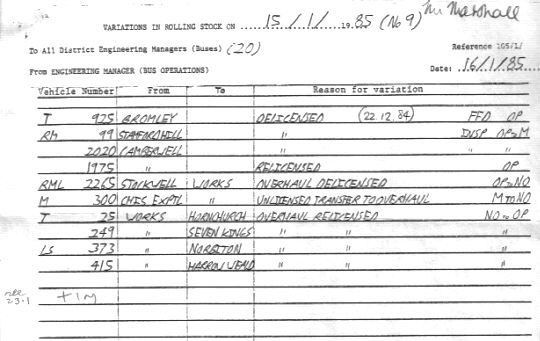 Mr Marshall
VARIATIONS IN ROLLING STOCK ON 15/1/ 1985 (No 9)
To All District Engineering Managers (Buses) (20) Reference 105/1/
From ENGINEERING MANAGER (BUS OPERATIONS) Date: 16/1/85
Vehicle Number From To Reason for variation
T 925 BROMLEY DELICENSED (22.12.84) FFD OP
RM 99 STAMFORD HILL " INSP OP>M
2020 CAMBERWELL " " "
1975 " RELICENSED OP
RML 2265 STOCKWELL WORKS OVERHAUL DELICENSED OP>NO
M 300 CHIS EXPTL " UNLICENSED TRANSFER TO OVERHAUL M TO NO
T 25 WORKS HORNCHURCH OVERHAUL RELICENSED NO > OP
249 " SEVEN KINGS " " "
LS 373 " NORBITON " " "
415 " HARROW WEALD " " "
23.1 + 1M